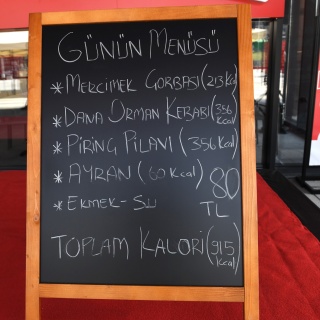 GÜNÜN MENÜSÜ
* MERCİMEK ÇORBASI (213 Kcal)
* DANA ORMAN KEBABI (356 kcal)
* PİRİNÇ PİLAVI (356 kcal)
* AYRAN (60 kcal)
* EKMEK - SU
80 TL
TOPLAM KALORİ (915 kcal)